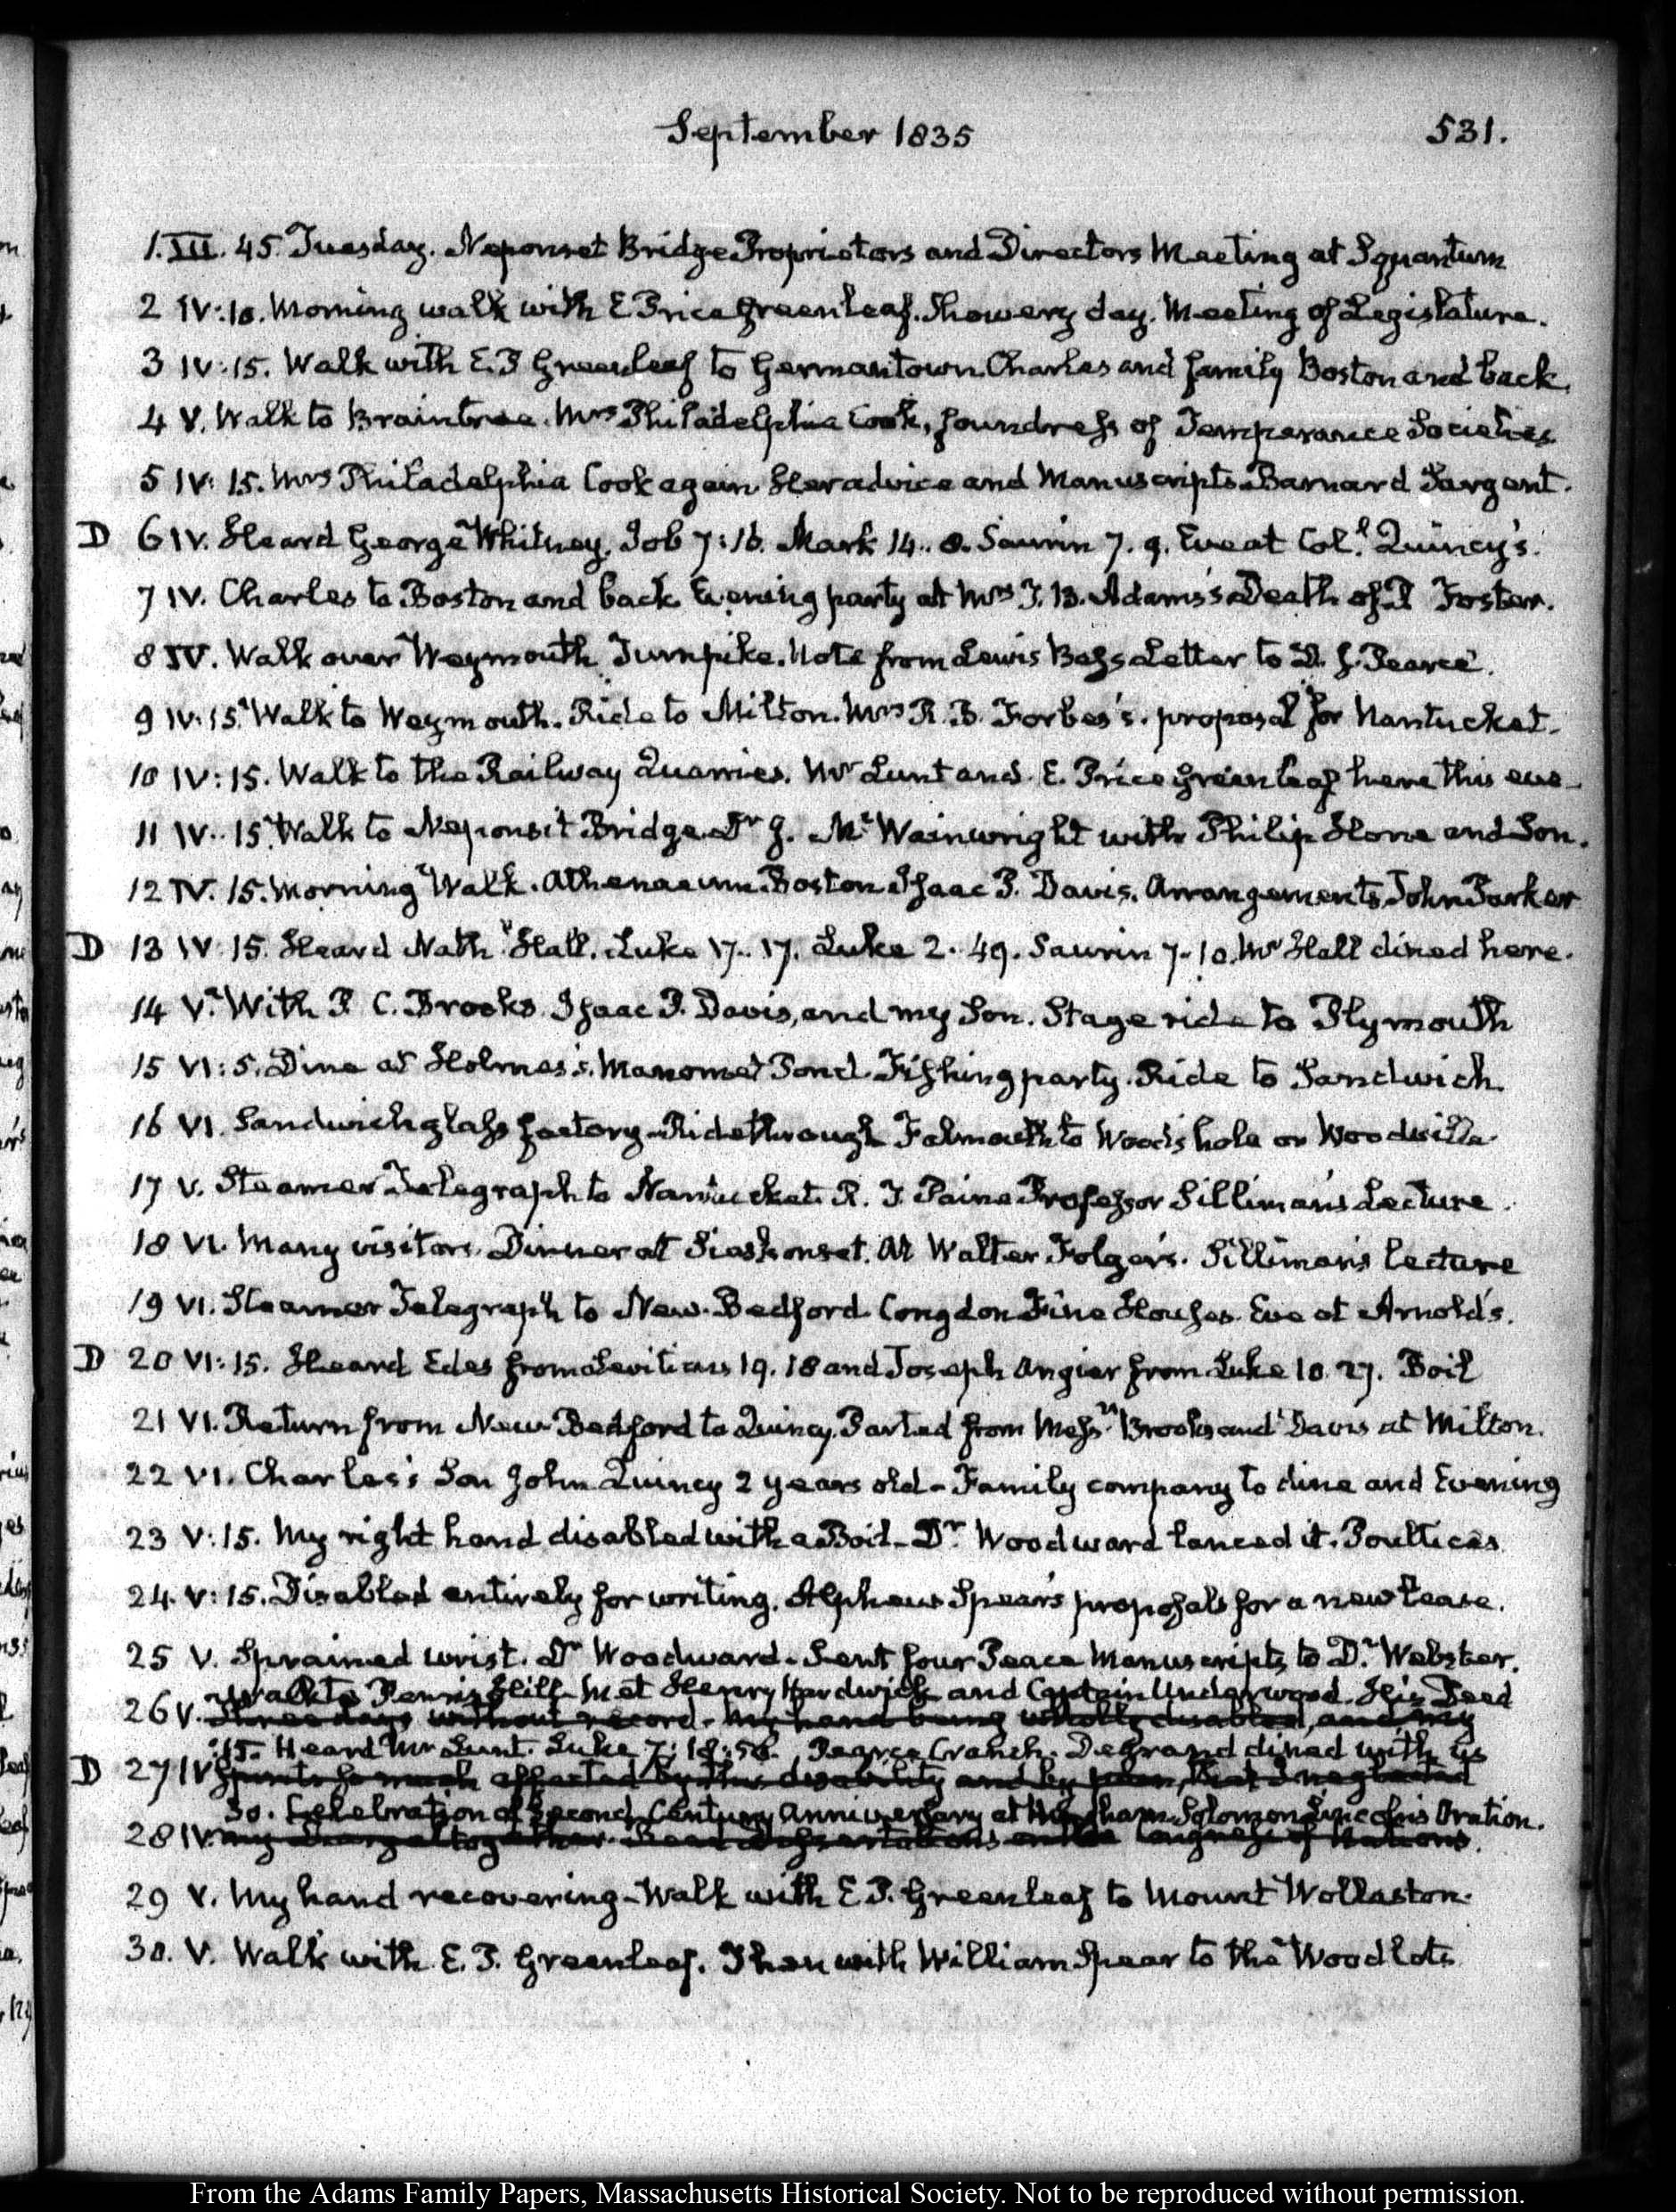 September 1835 531.
1. III. 45. Tuesday. Neponset Bridge Proprietors and Directors Meeting at Squantum
2 IV:10. Morning walk with E Price Greenleaf. Showery day. Meeting of Legislature.
3 IV:15. Walk with E. P Greenleaf to Germantown. Charles and family Boston and back.
4 V. Walk to Braintree. Mrs Philadelphia Cook, foundress of Temperance Societies
5 IV:15. Mrs Philadelphia Cook again Her advice and Manuscripts. Barnard Sargent.
D 6 IV. Heard George Whitney. Job 7:16. Mark 14..8. Saurin 7.9. Eve at Col.l Quincy's.
7 IV. Charles to Boston and back. Evening party at Mrs T. B. Adams's Death of Foster.
8 IV. Walk over Weymouth Turnpike. Note from Lewis Bass Letter to D. J. Pearce.
9 IV:15. Walk to Weymouth. Ride to Milton. Mrs R. B. Forbes's. proposal for Nantucket.
10 IV:15. Walk to the Railway Quarries. Mr Lunt and E. Price Greenleaf here this eve
11 IV..15. Walk to Neponsit Bridge. Dr J. M. Wainwright with Philip Hone and Son.
12 IV.15. Morning Walk. Athenaeum Boston Isaac P. Davis. Arrangements. John Parker
D 13 IV 15. Heard Nath.l Hall. Luke 17..17. Luke 2..49. Saurin 7..10. Mr Hall dined here.
14 V. With P. C. Brooks Isaac P. Davis, and my Son. Stage ride to Plymouth
15 VI:5. Dine at Holmes's. Manomet Pond. Fishing party. Ride to Sandwich
16 VI. Sandwich glass factory. Ride through Falmouth to Wood's hole or Woodville
17 V. Steamer Telegraph to Nantucket. R. T. Paine Professor Silliman's Lecture.
18 VI. Many visitors. Dinner at Siasconset. At Walter Folger's. Silliman's Lecture
19 VI. Steamer Telegraph to New-Bedford. Congdon Fine Houses. Eve at Arnold's.
D 20 VI:15. Heard Edes from Leviticus 19.18 and Joseph Angier from Luke 10.27. Boil
21 VI. Return from New-Bedford to Quincy. Parted from Messrs Brooks and Davis at Milton.
22 VI. Charles's Son John Quincy 2 years old - Family company to dine and Evening
23 V:15. My right hand disabled with a Boil - Dr Woodward lanced it. Poultices
24. V:15. Disabled entirely for writing. Alpheus Spear's proposals for a new lease.
25 V. Sprained wrist. Dr Woodward - Sent four Peace Manuscripts to D. Webster.
Walk to Penn's Hill - met Henry Hardwick and Captain Underwood. His Deed
26 V. Three days without record - My hand being wholly disabled, and my
15. Heard Mr Lunt. Luke 7:18:56. Pearce Cranch. Degrand dined with us
D 27 IV. Spirits so much affected by this disability and by pain, that I neglected
30. Celebration of Second Century Anniversary at Hingham. Solomon Lincoln's Oration.
28 IV. my diary altogether. Read
29 V. My hand recovering - Walk with E P. Greenleaf to Mount Wollaston.
30. V. Walk with E. P. Greenleaf. Then with William Spear to the Woodlots
From the Adams Family Papers, Massachusetts Historical Society. Not to be reproduced without permission.